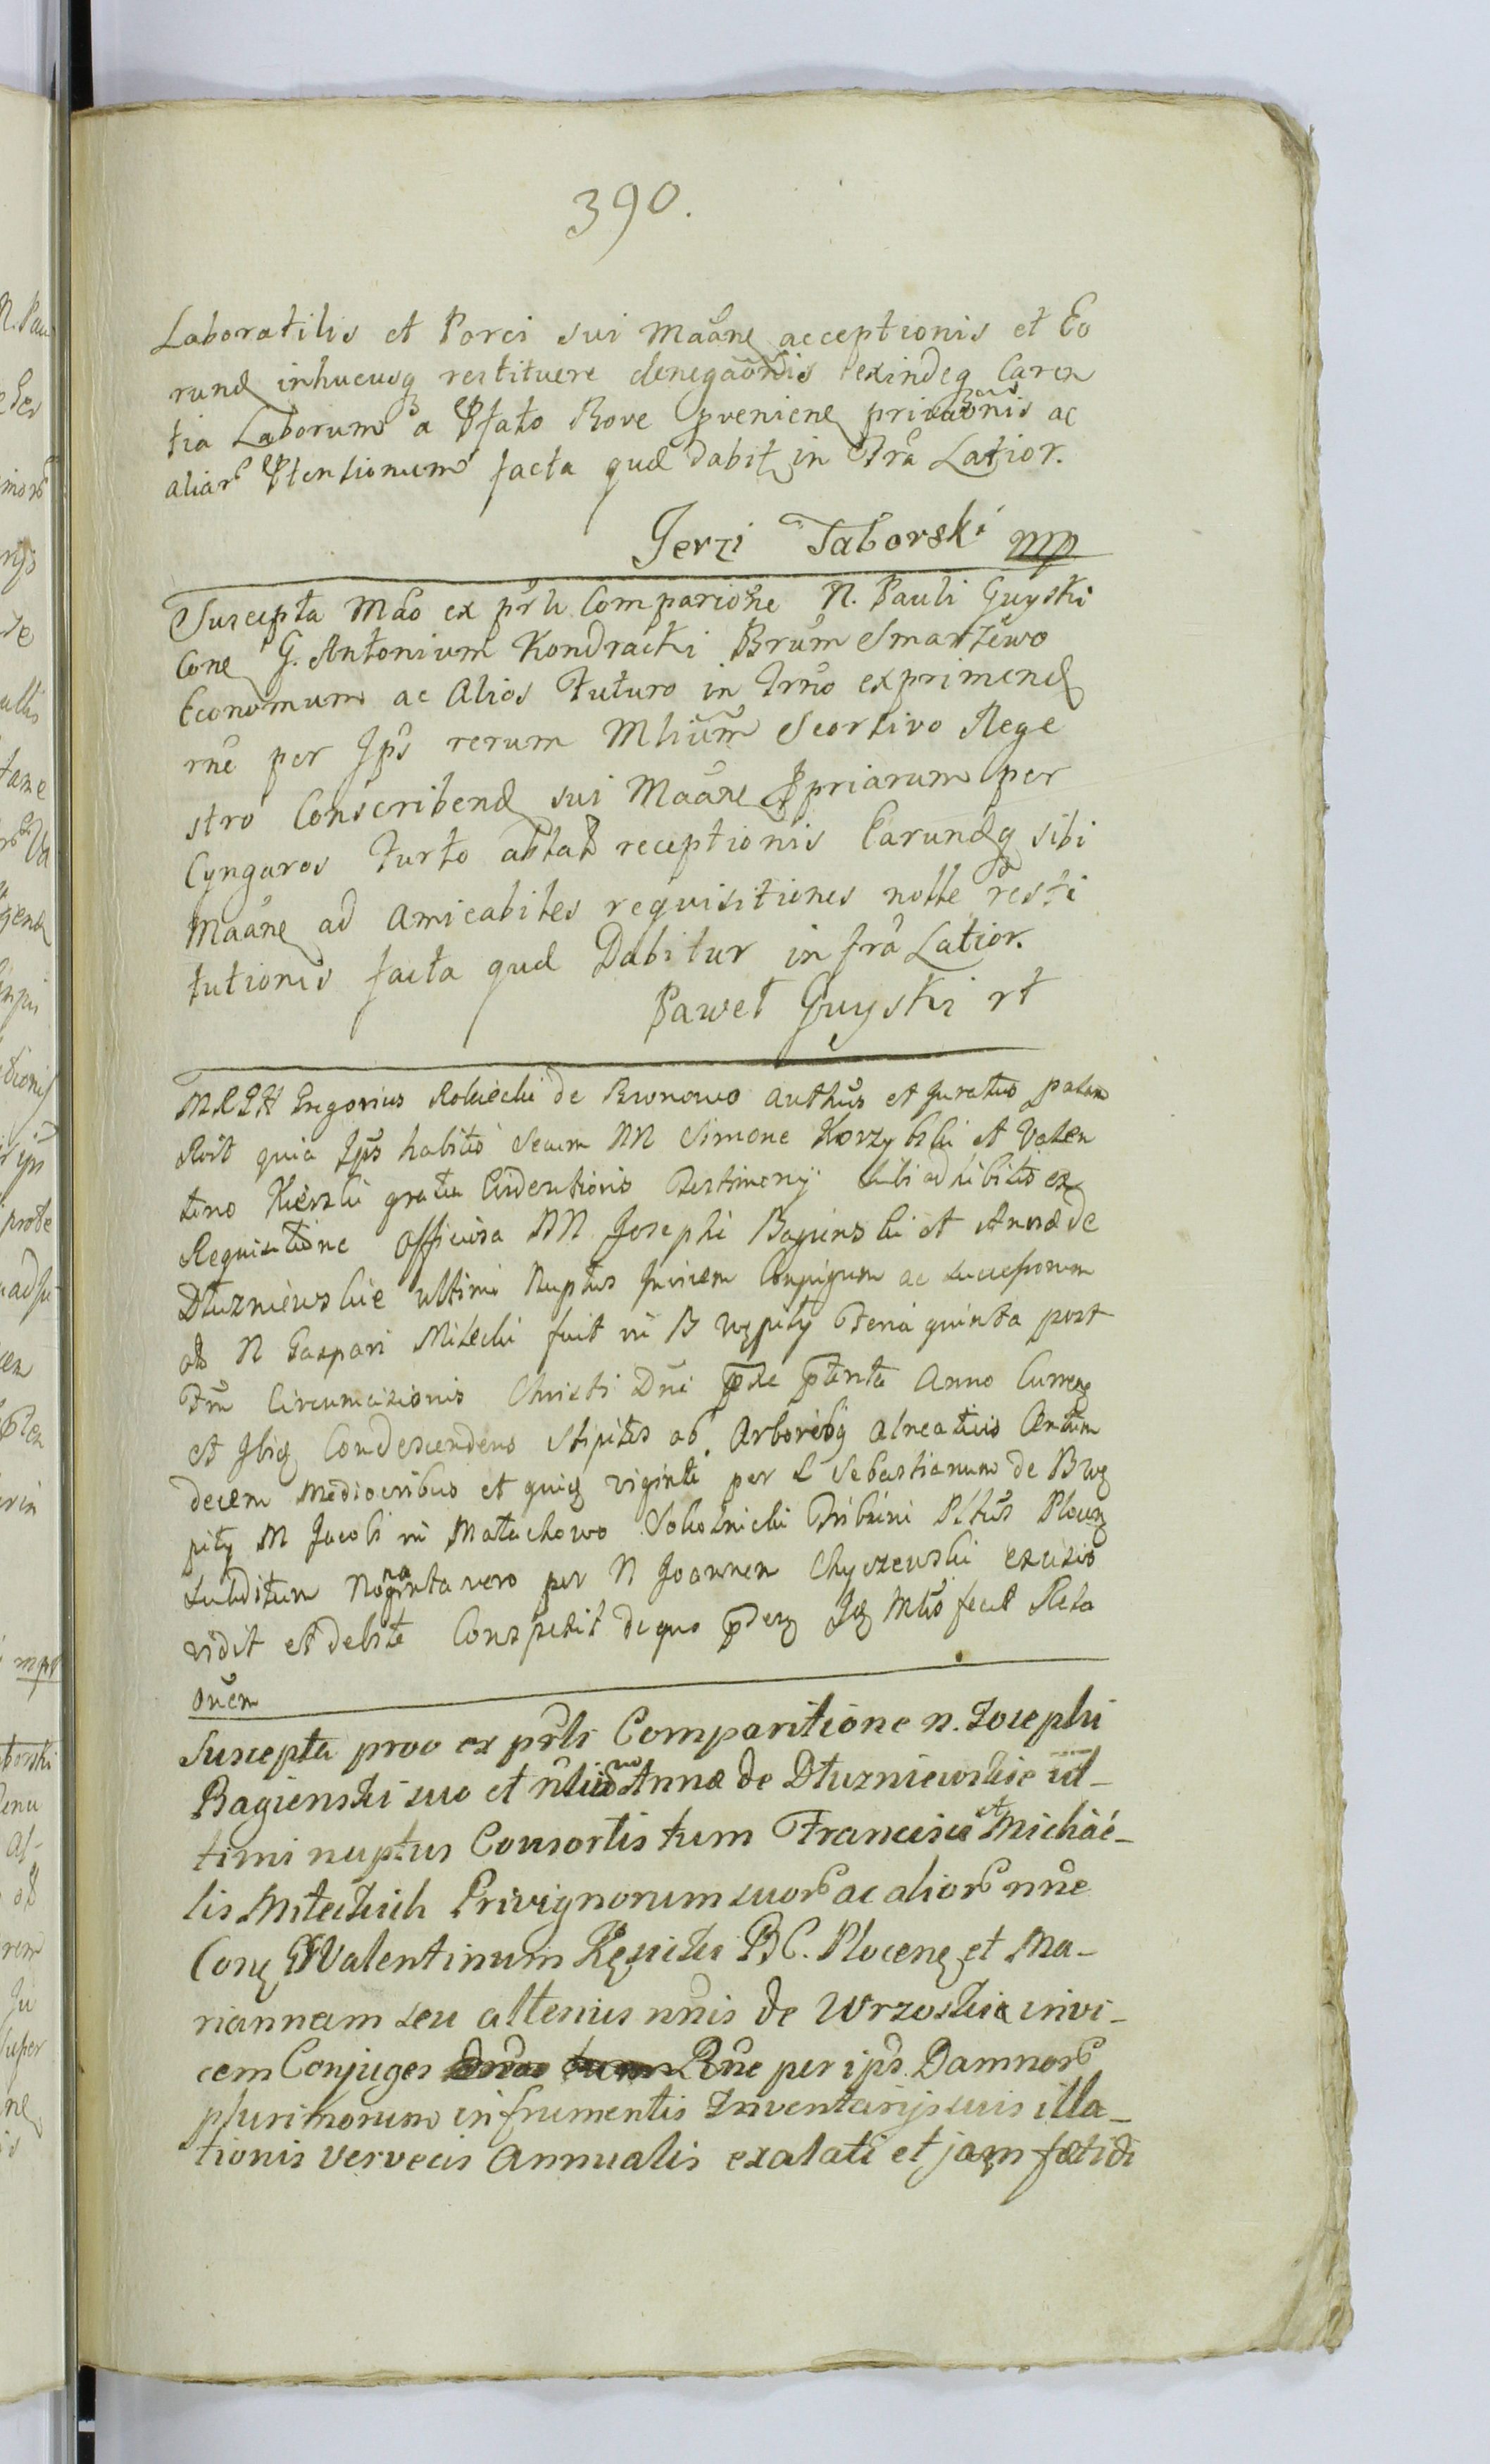 390.
Laboratilis et Porci sui Maâne acceptionis et Eo
rund inhucusq restituere denegaōnis exindeq Caren
tia Laborum a Pfato Bove pveniene privaōnis ac
aliar Ptensionum facta qud dabit in Frâ Latior.
Jerzi Taborski mp
Suscepta Mâo ex prli Compariōne N. Pauli Guyski
Cone G. Antonium Kondracki Brum Smarzewo
Economum ac Alios Futuro in Trno exprimend
rne per Ips rerum Mlium Seorsivo Rege
stro Conscribend sui Maâne Ppriarum per
Cyngaros Furto ablat receptionis Earundq sibi
Maâne ad amicabiles requisitiones nolle resti
tutionis facta qud Dabitur in frâ Latior.
Paweł Guyski rt
MRGH Gregorius Rokicki de Bronowo authus et Juratus palam
Roit quia Ips habitis Secum NN Simone Korzybski et Valen
tino Kierski gratia Evidentionis Testimonij sibi adhibitis ex
Requisitione officiosa NN Josephi Bagienski et Annæ de
Dłuzniewskie ultimi Nuptus Invicem Conjugum ac Successorum
ol N Gaspari Mitecki fuit in B Wępiły Feria quinta post
Fm Circumcisionis Christi Dni pxe ptrita Anno Curren
et Ibiq Condescendens Stipites ab Arboribq alneaticis Centum
decem mediocribus et quiq viginti per L Sebastianum de B Wę
piły M Jacobi in Małachowo Sokolnicki Tribuni Pltus Plocen
Subditum Nonaginta vero per N Joannem Chyczewski excisis
vidit et debite Conspexit de quo pdeq Jq Mlis fecit Rela
onem
Suscepta prov ex prli Comparitione n. Josephi
Bagienski suo et nlio noe Annæ de Dłuzniewskie ul-
timi nuptus Consortis tum Francisci et Michaé-
lis Miteckich Privignorum suor ac alior nne
Conq G Valentinum Kęsicki B C. Plocene et Ma-
riannam seu alterius nnis de Wrzoskie invi-
cem Conjuges Rne per ips Damnor
plurimorum in frumentis Inventarijs suis illa-
tionis Vervecis Annualis exalati et jam fætidi